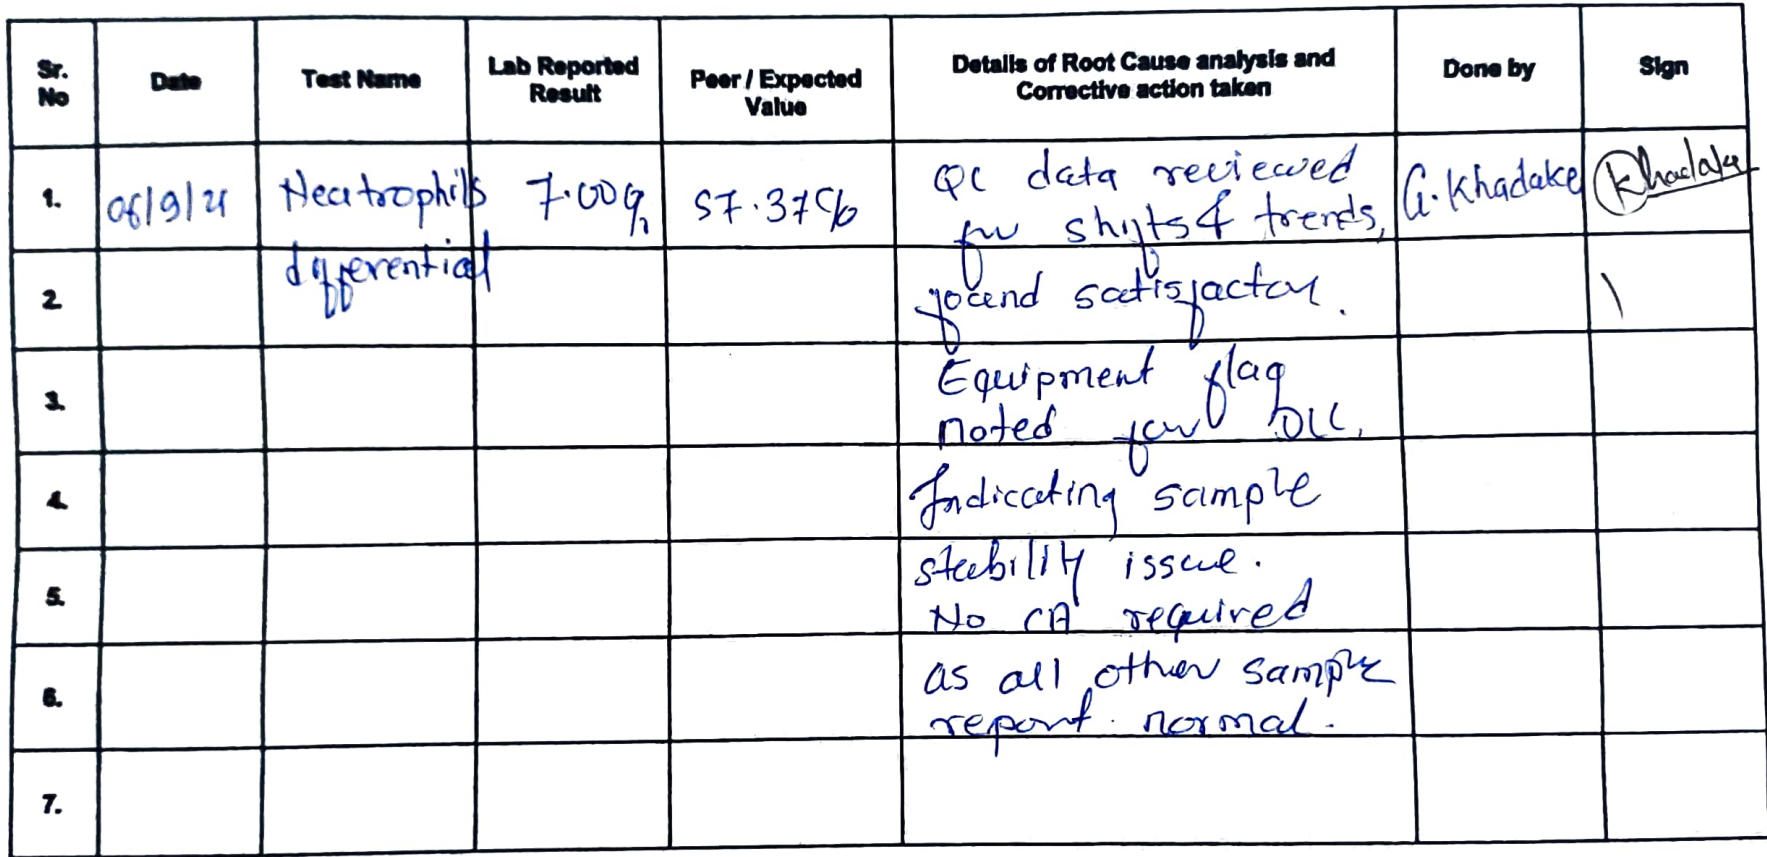 Sr. No Date Test Name Lab Reported Result Peer / Expected Value Details of Root Cause analysis and Corrective action taken Done by Sign
1. 7.00% 57.37% QC data reviewed G. Khadake Khadake
Neutrophils for shifts & trends,
differential
2. found satisfactory.
3. Equipment flag
noted for DLC,
4. Indicating sample
5. stability issue.
No CA required
6. as all other sample
report normal.
7.